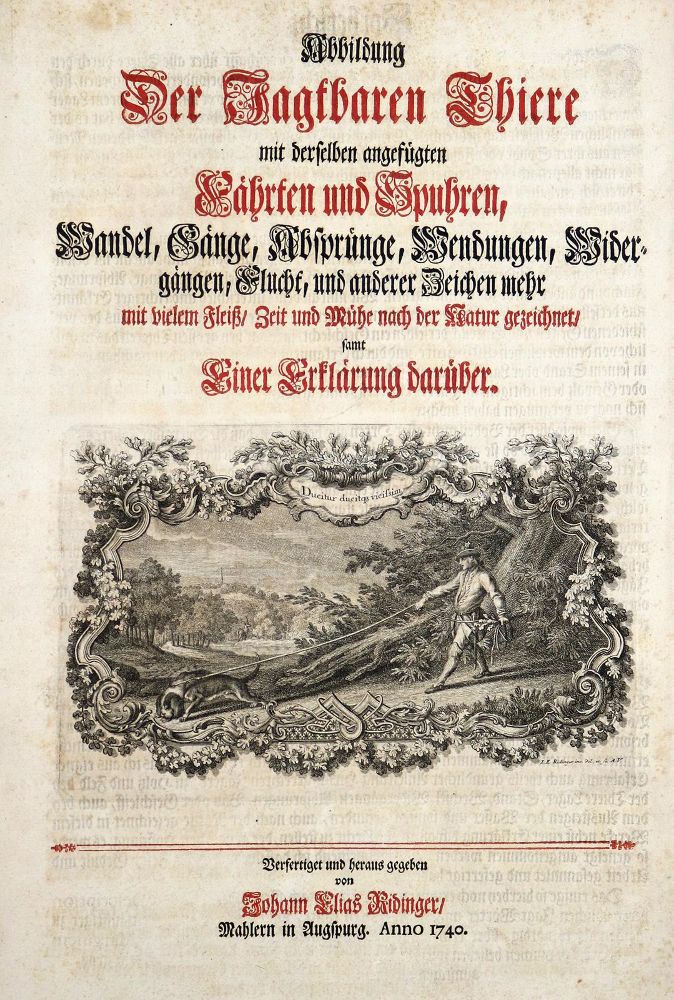 Abbildung
Der Jagtbaren Thiere
mit derselben angefügten
Fährten und Spuhren,
Wandel, Gänge, Absprünge, Wendungen, Wider-
gängen, Flucht, und anderer Zeichen mehr
mit vielem Fleiß/ Zeit und Mühe nach der Natur gezeichnet/
samt
Einer Erklärung darüber.
Ducitur ducitqs vicissim
J. E. Ridinger inv. del. et
Verfertiget und heraus gegeben
von
Johann Elias Ridinger/
Mahlern in Augspurg. Anno 1740.